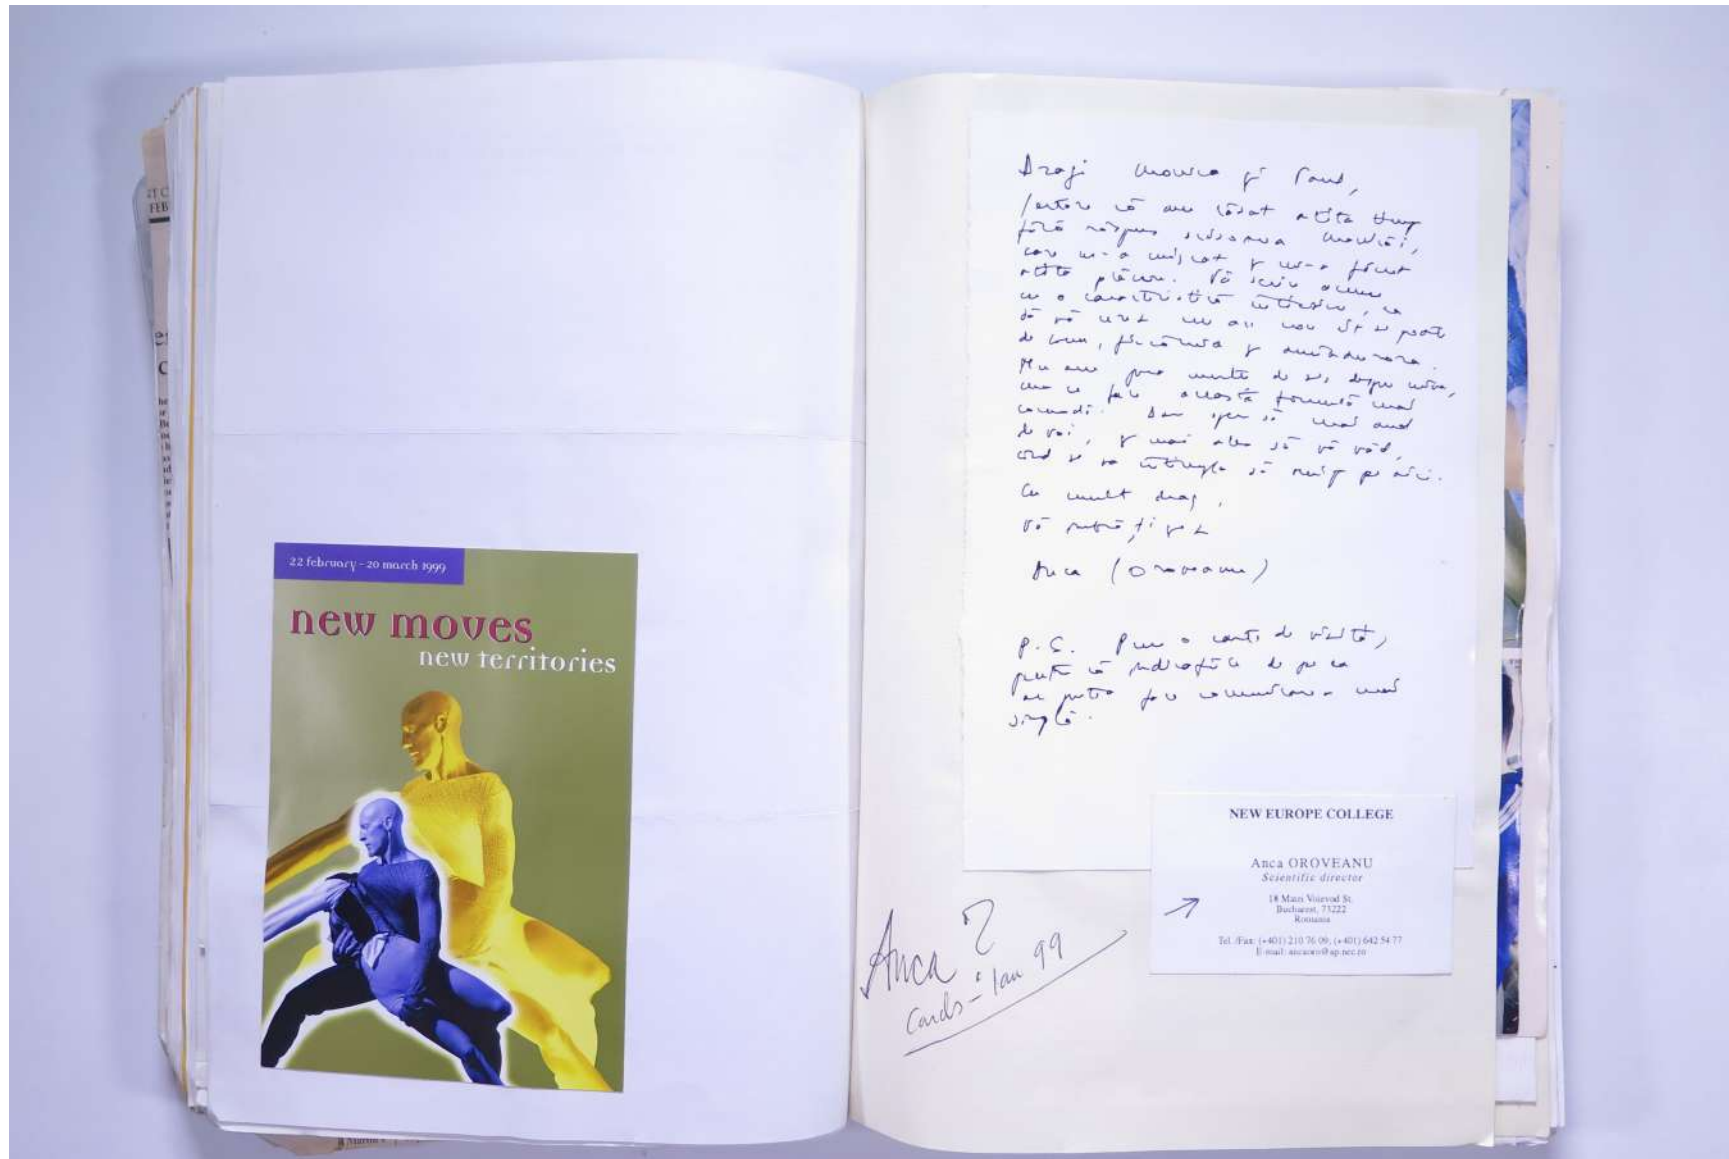 22 february - 20 march 1999
new moves
new territories
Dragi Monica și Paul,
iertare că am lăsat atîta timp
fără răspuns scrisoarea Monicăi,
care m-a mișcat și mi-a făcut
atîta plăcere. Vă scriu acum
cu o caracteristică întîrziere, ca
să vă urez un an nou cît se poate
de bun,
Nu am prea multe de zis despre mine,
ceea ce face această formulă mai
comodă. Dar sper să mai aud
de voi, și mai ales să vă văd,
cînd se va întîmpla să pe aici.
Cu mult drag,
vă îmbrățișez
Anca (Oroveanu)
P.S. Pun o carte de vizită,
pentru că indicațiile de pe ea
ar putea face comunicarea mai
simplă.
NEW EUROPE COLLEGE
Anca OROVEANU
Scientific director
18 Matei Voievod St.
Bucharest, 73222
Romania
Tel./Fax: (+401) 210 76 09; (+401) 642 54 77
E-mail: ancaoro@ap.nec.ro
Anca
Cards - Jan 99